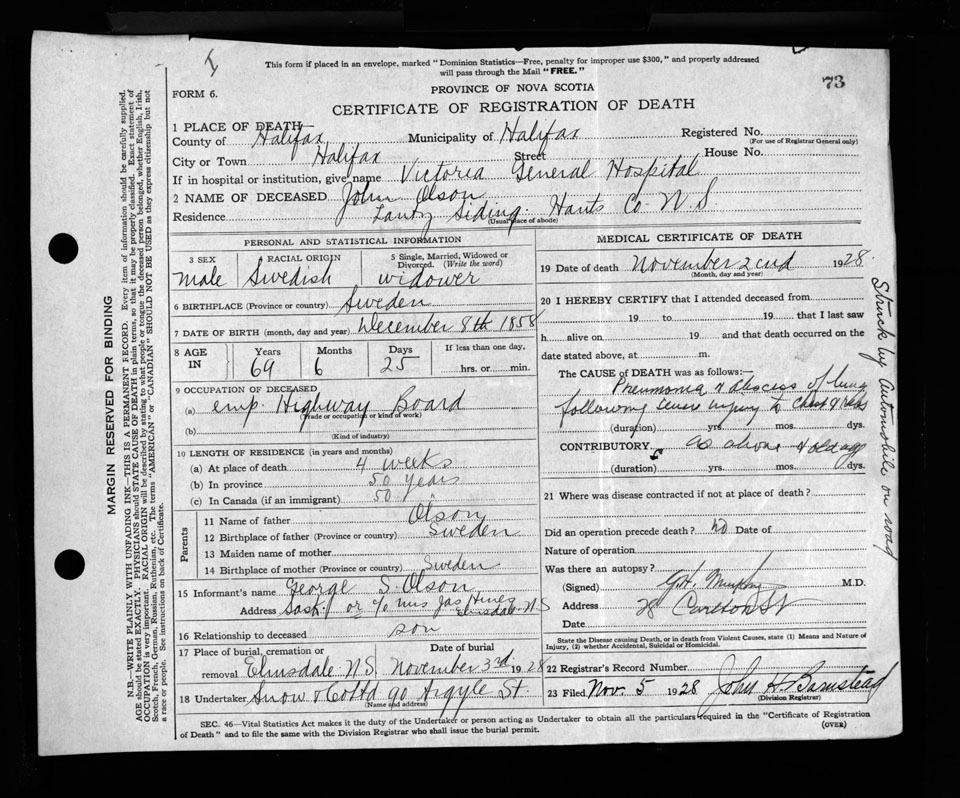 This form if placed in an envelope, marked "Dominion Statistics—Free, penalty for improper use $300," and properly addressed
will pass through the Mail "FREE."
73
FORM 6.
PROVINCE OF NOVA SCOTIA
CERTIFICATE OF REGISTRATION OF DEATH
1 PLACE OF DEATH
County of Halifax Municipality of Halifax Registered No.
(For use of Registrar General only)
City or Town Halifax Street House No.
If in hospital or institution, give name Victoria General Hospital
2 NAME OF DECEASED John Olson
Residence Lantz Siding Hants Co N.S.
(Usual place of abode)
PERSONAL AND STATISTICAL INFORMATION
3 SEX RACIAL ORIGIN 5 Single, Married, Widowed or
Divorced. (Write the word)
male Swedish widower
6 BIRTHPLACE (Province or country) Sweden
7 DATE OF BIRTH (month, day and year) December 8th 1858
8 AGE IN Years Months Days If less than one day,
69 6 25 hrs. or min.
9 OCCUPATION OF DECEASED
(a) emp. Highway Board
(Trade or occupation or kind of work)
(b)
(Kind of industry)
10 LENGTH OF RESIDENCE (in years and months)
(a) At place of death 4 weeks
(b) In province 50 years
(c) In Canada (if an immigrant) 50 "
Parents
11 Name of father Olson
12 Birthplace of father (Province or country) Sweden
13 Maiden name of mother
14 Birthplace of mother (Province or country) Sweden
15 Informant's name George S. Olson
Address Sask. or c/o Mrs Jas Hines Elmsdale N.S
16 Relationship to deceased son
17 Place of burial, cremation or removal Date of burial
Elmsdale N.S. November 3rd 1928
18 Undertaker Snow & Co Ltd 90 Argyle St.
(Name and address)
MEDICAL CERTIFICATE OF DEATH
19 Date of death November 2cnd 1928.
(Month, day and year)
20 I HEREBY CERTIFY that I attended deceased from
19 to 19 that I last saw
h alive on 19 and that death occurred on the
date stated above, at m.
The CAUSE of DEATH was as follows:
Pneumonia & abscess of lung
following severe injury to chest & ribs
(duration) yrs. mos. dys.
CONTRIBUTORY as above & old age
(duration) yrs. mos. dys.
21 Where was disease contracted if not at place of death?
Did an operation precede death? no Date of
Nature of operation
Was there an autopsy?
(Signed) G.H. Murphy M.D.
Address 28 Carleton St
Date
State the Disease causing Death, or in death from Violent Causes, state (1) Means and Nature of
Injury, (2) whether Accidental, Suicidal or Homicidal.
22 Registrar's Record Number
23 Filed Nov. 5 1928 John H. Barnstead
(Division Registrar)
SEC. 46—Vital Statistics Act makes it the duty of the Undertaker or person acting as Undertaker to obtain all the particulars required in the "Certificate of Registration
of Death" and to file the same with the Division Registrar who shall issue the burial permit.
(OVER)
Struck by Automobile on road
MARGIN RESERVED FOR BINDING
N.B.—WRITE PLAINLY WITH UNFADING INK—THIS IS A PERMANENT RECORD. Every item of information should be carefully supplied.
AGE should be stated EXACTLY. PHYSICIANS should STATE CAUSE OF DEATH in plain terms, so that it may be properly classified. Exact statement of
OCCUPATION is very important. RACIAL ORIGIN will be described by stating to what people or tongue the deceased person belonged, whether English, Irish,
Scotch, French, German, Russian, Ruthenian, etc. The terms "AMERICAN" or "CANADIAN" SHOULD NOT BE USED as they express citizenship but not
a race or people. See instructions on back of Certificate.